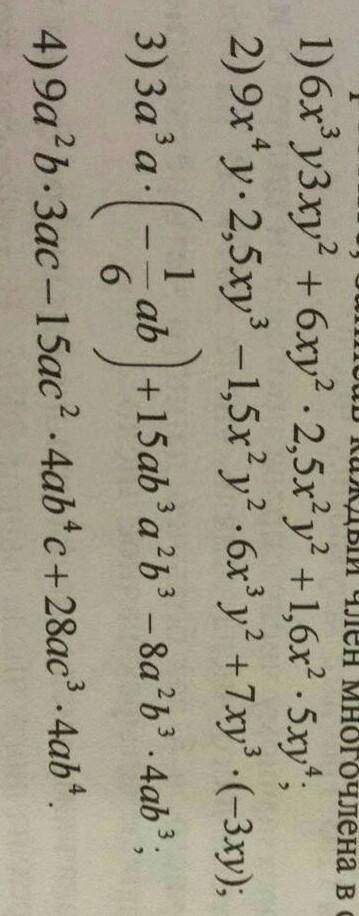 каждый член многочлена в
1) 6x³y3xy² + 6xy² · 2,5x²y² + 1,6x² · 5xy⁴;
2) 9x⁴y · 2,5xy³ − 1,5x²y² · 6x³y² + 7xy³ · (−3xy);
3) 3a³a · (− 1/6 ab) + 15ab³a²b³ − 8a²b³ · 4ab³;
4) 9a²b · 3ac − 15ac² · 4ab⁴c + 28ac³ · 4ab⁴.